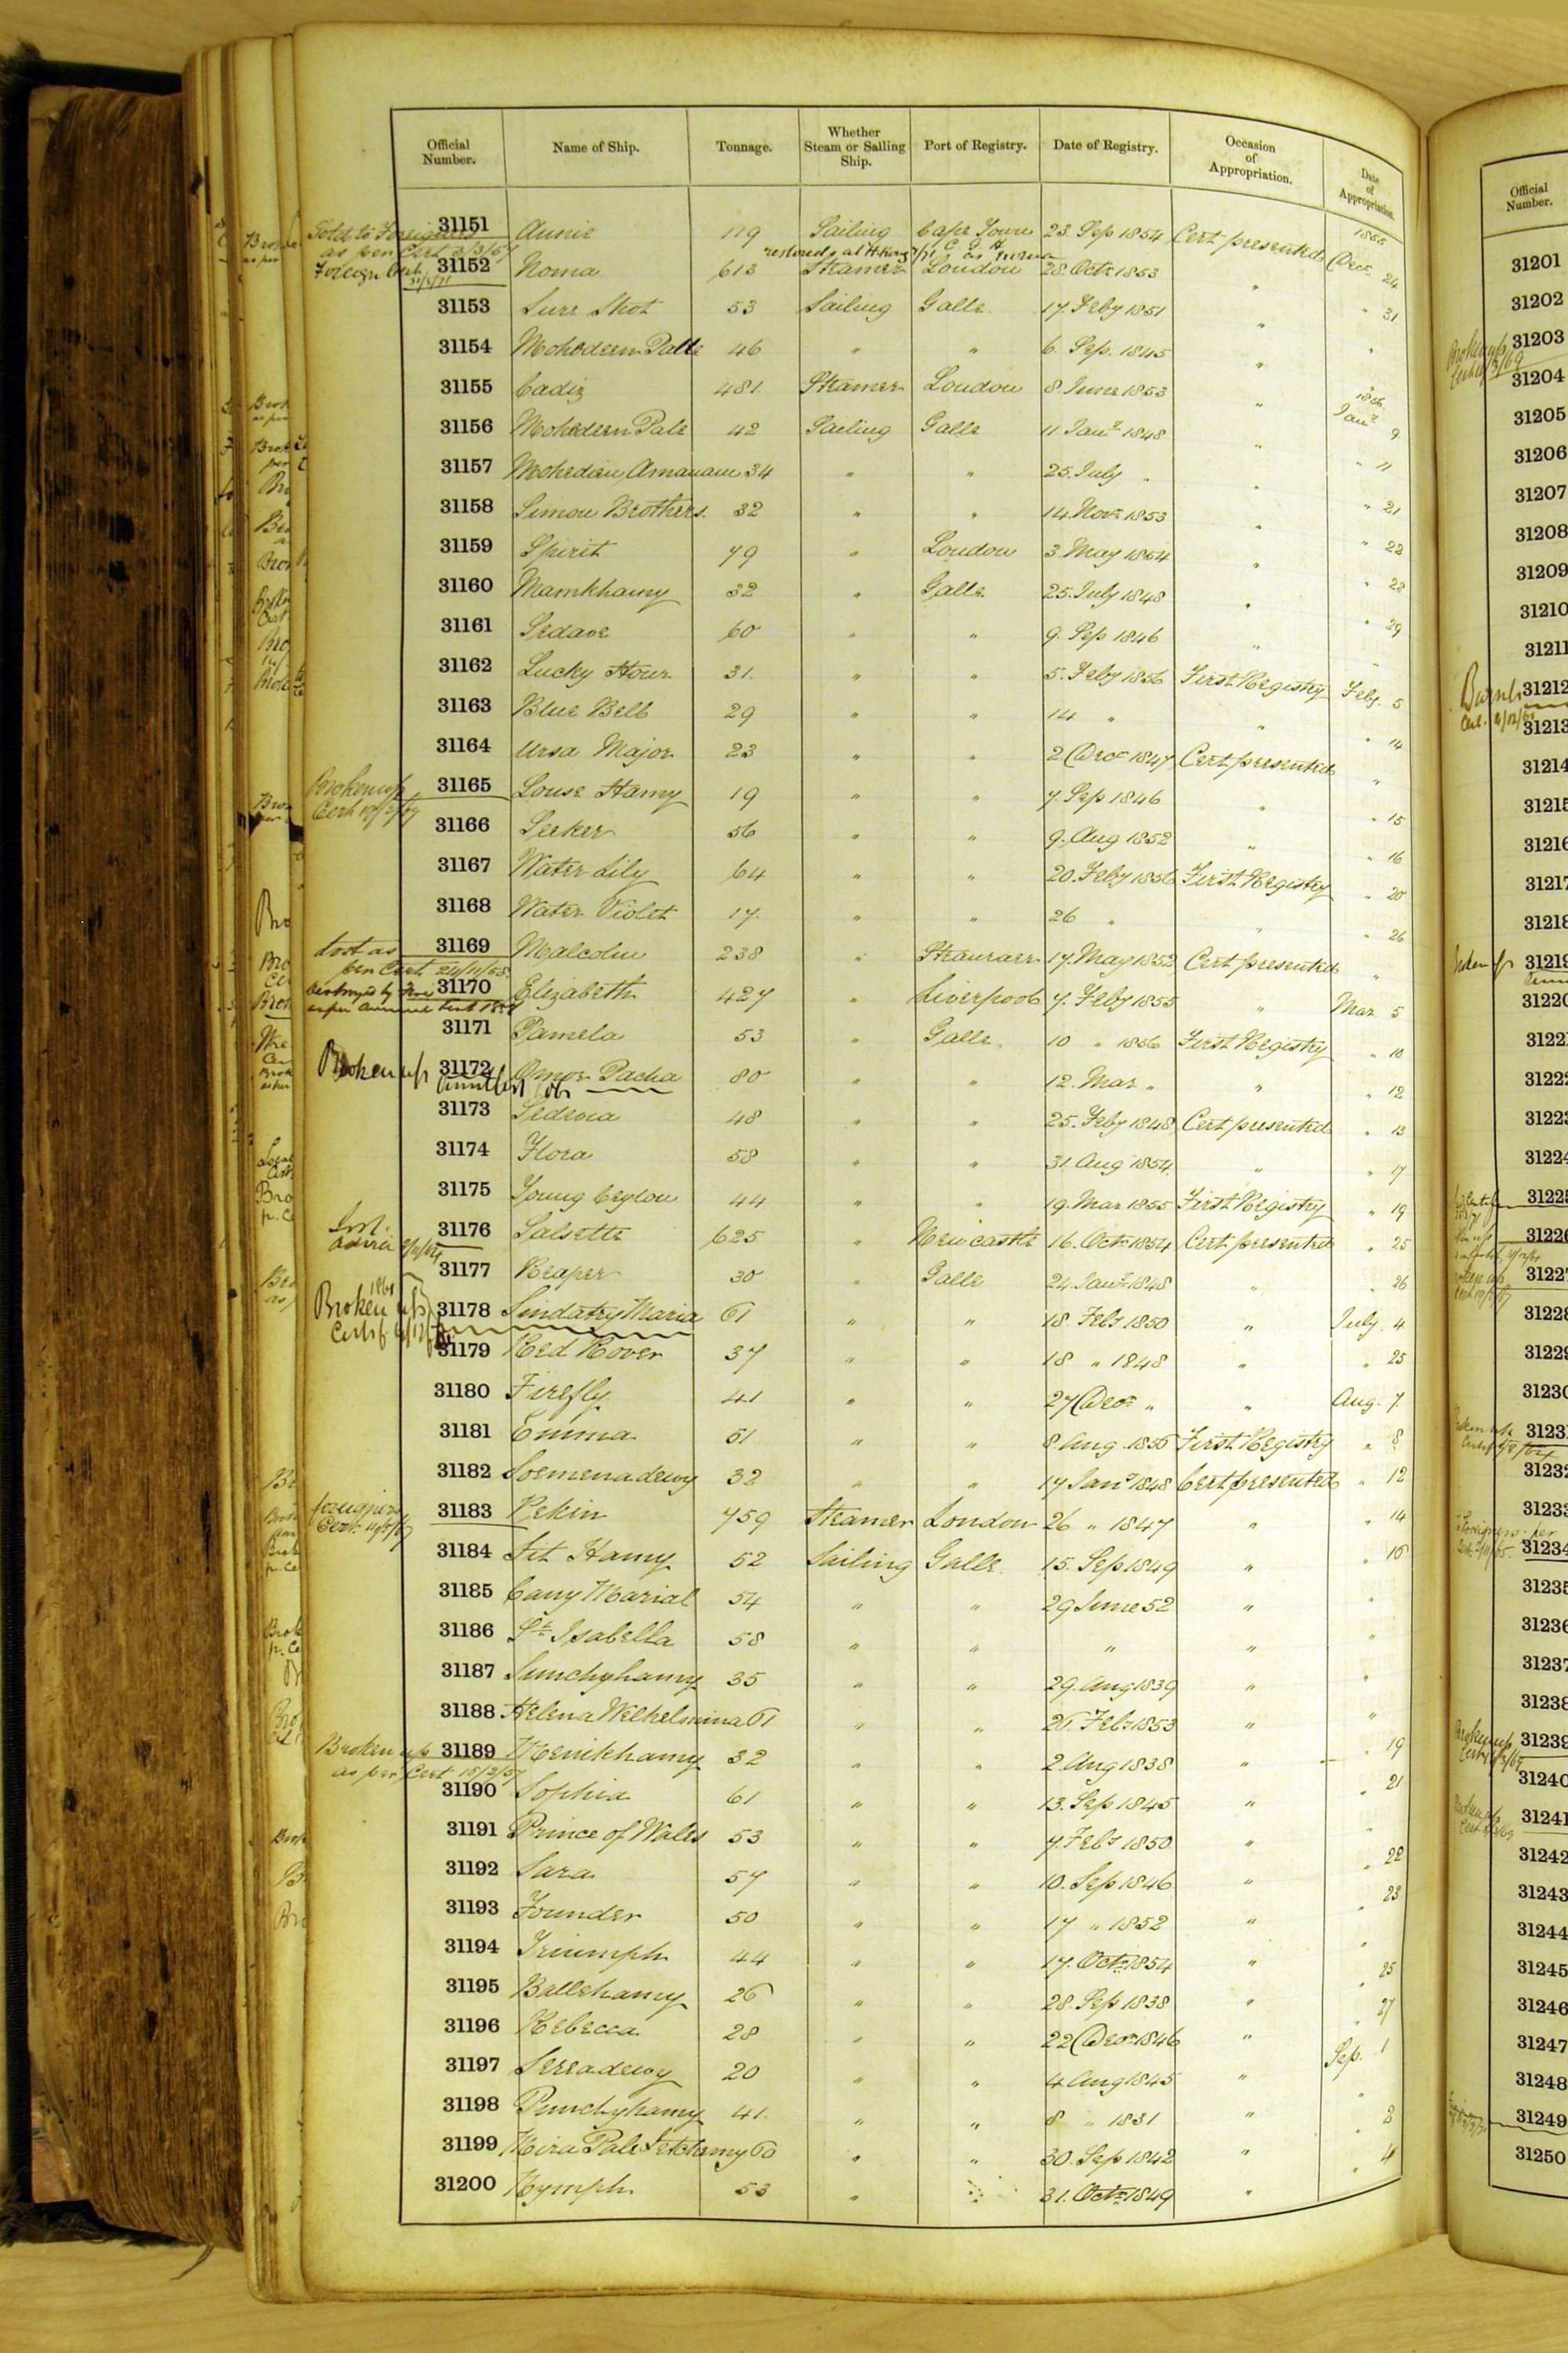 Official Number. Name of Ship. Tonnage. Whether Steam or Sailing Ship. Port of Registry. Date of Registry. Occasion of Appropriation. Date of Appropriation.
Sold to Foreigners 31151 Annie 119 Sailing Cape Town 23. Sep 1854 Cert presented 1855 Decr 24
as per Cert 3/3/57 C G H
Foreign Cert 31152 Noma 613 Steamer London 28. Octr 1853 " " 31
31153 Sure Shot 53 Sailing Galle 17. Feby 1851 " "
31154 Mohodeen Palle 46 " " 6. Sep. 1845 " "
31155 Cadiz 481 Steamer London 8. June 1853 " 1856 Jany 9
31156 Mohedeen Pale 42 Sailing Galle 11 Jany 1848 " " 11
31157 Mohedien Amanam 34 " " 25. July " " " 21
31158 Simon Brothers. 32 " " 14. Novr 1853 " " 22
31159 Spirit 79 " London 3. May 1854 " " 28
31160 Mamkhamy 32 " Galle 25. July 1848 " " 29
31161 Sedave 60 " " 9. Sep 1846 " "
31162 Lucky Hour 31. " " 5. Feby 1856 First Registry Feby. 5
31163 Blue Bell 29 " " 14 " " " 14
31164 Ursa Major 23 " " 2 Decr 1847 Cert presented "
Broken up 31165 Louse Hamy 19 " " 7. Sep 1846 " " 15
31166 Seeker 56 " " 9. Aug 1852 " " 16
31167 Water Lily 64 " " 20. Feby 1856 First Registry " 20
31168 Water Violet 17. " " 26 " " " 26
Lost as 31169 Malcolm 238 " Stranraer 17. May 1852 Cert presented "
per Cert 24/11/68
Destroyed by Fire 31170 Elizabeth 427 " Liverpool 7. Feby 1855 " Mar 5
31171 Pamela 53 " Galle. 10 " 1856 First Registry " 10
Broken up 31172 Omor Pacha 80 " " 12. Mar " " " 12
31173 Sedona 48 " " 25. Feby 1848 Cert presented " 13
31174 Flora 58 " " 31. Aug 1854. " " 17
31175 Young Ceylon 44 " " 19. Mar 1855 First Registry " 19
31176 Salsette 625 " Newcastle 16. Octr 1854 Cert presented " 25
31177 Reaper 30 " Galle 24 Jany 1848 " " 26
Broken up 31178 Sindatry Maria 61 " " 18 Feby 1850 " July. 4
31179 Red Rover 37 " " 18 " 1848 " " 25
31180 Firefly. 41 " " 27 Decr " " Aug. 7
31181 Emma 51 " " 8 Aug. 1856 First Registry " 8
31182 Soemenadewy 32 " " 17 Jany 1848 Cert presented " 12
foreigners 31183 Pekin 759 Steamer London 26 " 1847 " " 14
31184 Sit Hamy 52 Sailing Galle. 15. Sep 1849 " " 16
31185 Cany Marial 54 " " 29 June 52 " "
31186 St Isabella 58 " " " " "
31187 Sunchyhamy 35 " " 29. Aug 1839 " "
31188 Helena Wilhelmina 61 " " 26. Feby 1853 " "
Broken up 31189 Menikhamy 32 " " 2. Aug 1838 " " 19
as per Cert 15/2/57
31190 Sophia 61 " " 13. Sep 1845 " " 21
31191 Prince of Wales 53 " " 7. Feby 1850 " "
31192 Sara 57 " " 10. Sep 1846 " " 22
31193 Founder 50 " " 17 " 1852 " " 23
31194 Triumph 44 " " 17. Octr 1854 " "
31195 Ballehamy 26 " " 28. Sep 1838 " " 25
31196 Rebecca 28 " " 22 Decr 1846 " " 27
31197 Sereadewy 20 " " 4 Aug 1845 " Sep. 1
31198 Punchyhamy 41. " " 8 " 1831 " "
31199 60 " " 30. Sep 1842 " "
31200 Nymph 53 " 31. Octr 1849 " " 4
Official Number.
31201
31202
31203
31204
31205
31206
31207
31208
31209
31210
31211
31212
31213
31214
31215
31216
31217
31218
31219
31220
31221
31222
31223
31224
31225
31226
31227
31228
31229
31230
31231
31232
31233
31234
31235
31236
31237
31238
31239
31240
31241
31242
31243
31244
31245
31246
31247
31248
31249
31250